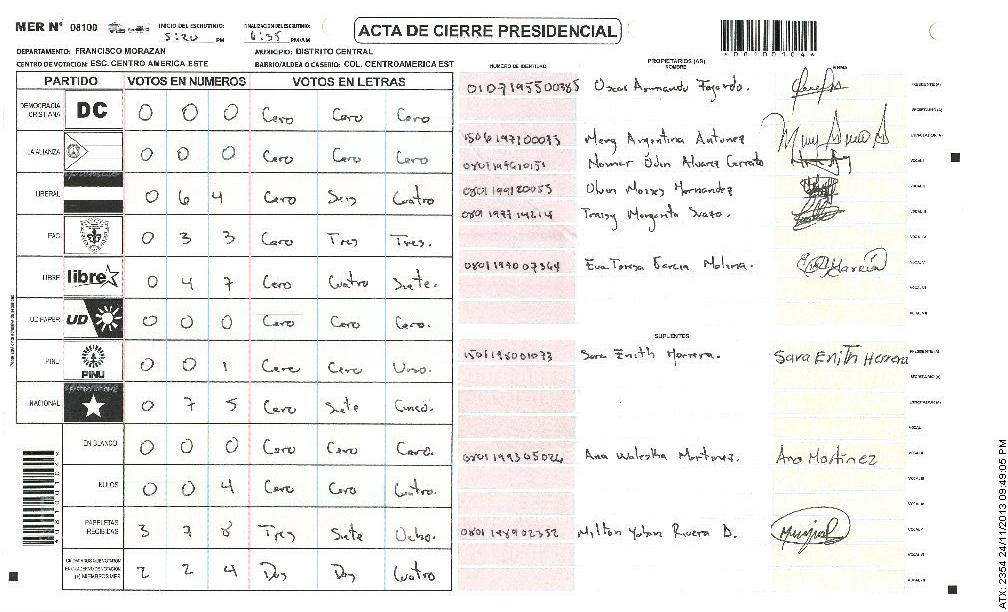 MER N° 08100 INICIO DEL ESCRUTINIO: 5:20 PM FINALIZACION DEL ESCRUTINIO: 6:35 PM/AM
ACTA DE CIERRE PRESIDENCIAL
DEPARTAMENTO: FRANCISCO MORAZAN MUNICIPIO: DISTRITO CENTRAL
CENTRO DE VOTACION: ESC. CENTRO AMERICA ESTE BARRIO/ALDEA O CASERIO: COL. CENTROAMERICA EST
PARTIDO VOTOS EN NUMEROS VOTOS EN LETRAS
DEMOCRACIA CRISTIANA DC 0 0 0 Cero Cero Cero
LA ALIANZA 0 0 0 Cero Cero Cero
LIBERAL 0 6 4 Cero Seis Cuatro
PAC 0 3 3 Cero Tres Tres.
LIBRE libre 0 4 7 Cero Cuatro Siete.
UD FAPER UD 0 0 0 Cero Cero Cero.
PINU PINU 0 0 1 Cero Cero Uno.
NACIONAL 0 7 5 Cero Siete Cinco.
EN BLANCO 0 0 0 Cero Cero Cero.
NULOS 0 0 4 Cero Cero Cuatro.
PAPELETAS RECIBIDAS 3 7 8 Tres Siete Ocho.
2 2 4 Dos Dos Cuatro
NUMERO DE IDENTIDAD PROPIETARIOS (AS) NOMBRE FIRMA
0107195500385 Oscar Armando Fajardo. PRESIDENTE (A)
SECRETARIO (A)
Mery Argentina Antunez ESCRUTADOR (A)
Alvarez Cerrato VOCAL I
Moises Hernandez VOCAL II
0801197714214 Margarita Suazo. VOCAL III
VOCAL IV
0801197007364 Eva Teresa Garcia Molina. VOCAL V
VOCAL VI
VOCAL VII
SUPLENTES
1501198001073 Sara Enith Herrera. Sara Enith Herrera PRESIDENTE (A)
SECRETARIO (A)
ESCRUTADOR (A)
VOCAL I
0801199305026 Ana Waleska Martinez. Ana Martinez VOCAL II
VOCAL III
0801198902352 Milton Yoban Rivera D. VOCAL V
VOCAL VI
VOCAL VII
ATX: 2354 24/11/2013 09:49:05 PM